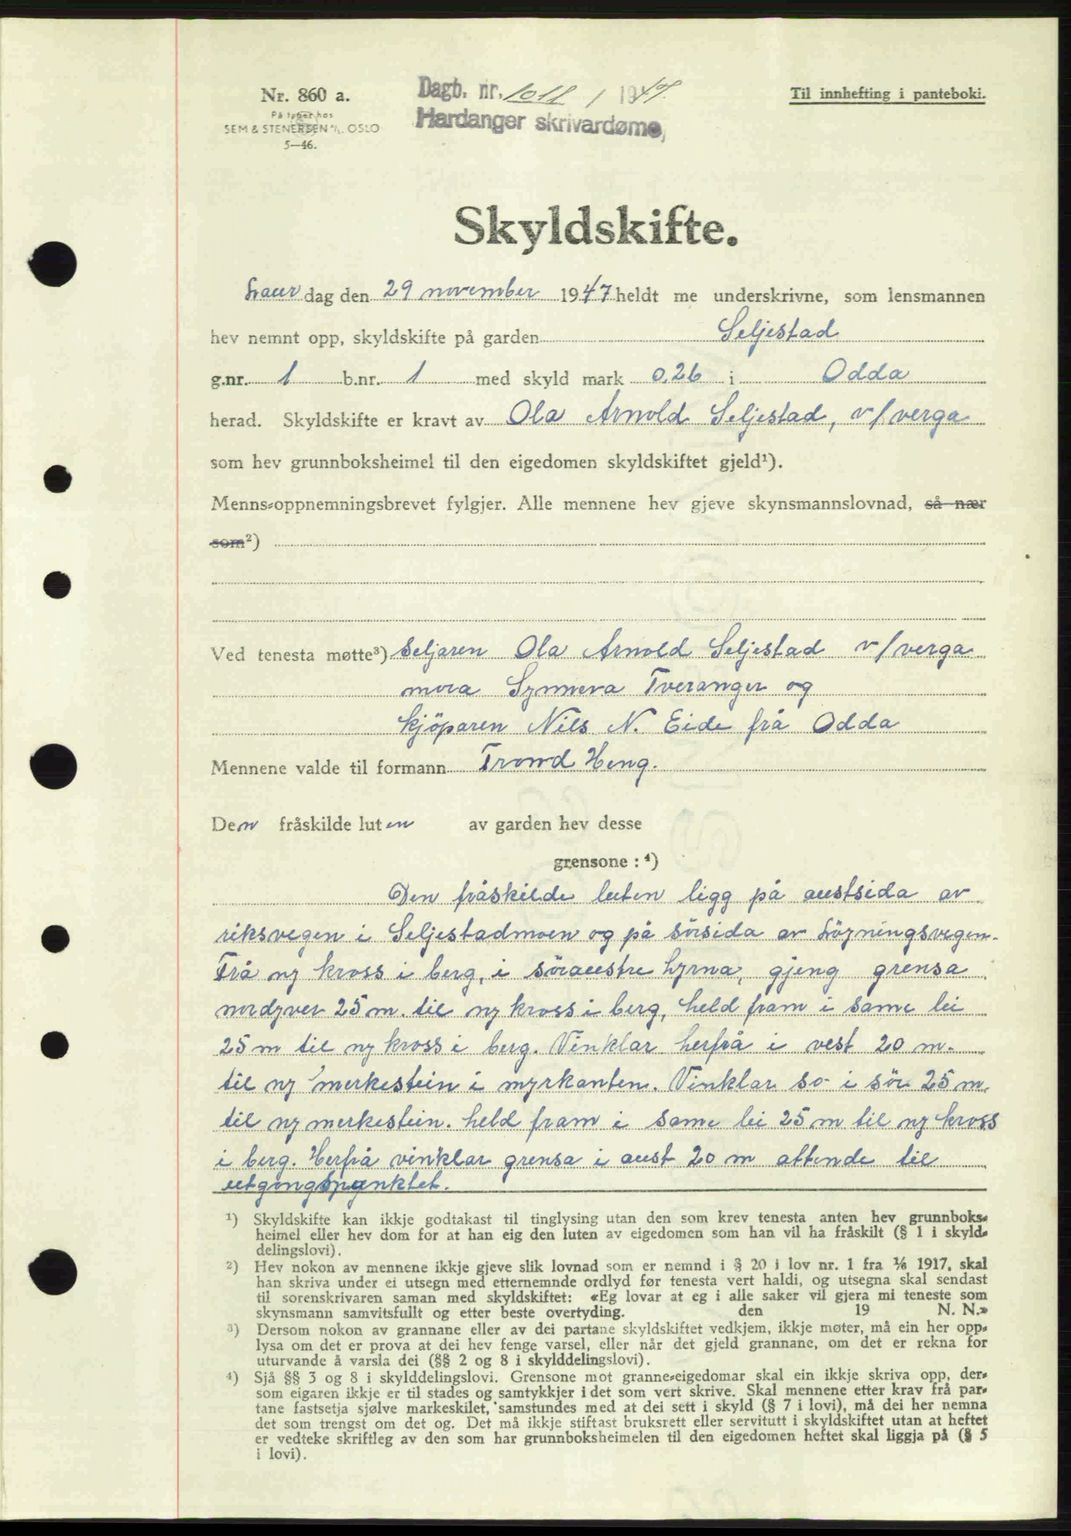 Nr. 860 a.
På lager hos
SEM & STENERSEN A/S. OSLO
5—46.
Dagb. nr. 1011 / 1947.
Hardanger skrivardøme,
Til innhefting i panteboki.
Skyldskifte.
Laur dag den 29 november 1947 heldt me underskrivne, som lensmannen
hev nemnt opp, skyldskifte på garden Seljestad
g.nr. 1 b.nr. 1 med skyld mark 0.26 i Odda
herad. Skyldskifte er kravt av Ola Arnold Seljestad, v/verga
som hev grunnboksheimel til den eigedomen skyldskiftet gjeld¹).
Menns-oppnemningsbrevet fylgjer. Alle mennene hev gjeve skynsmannslovnad, så nær
som²)
Ved tenesta møtte³) Seljaren Ola Arnold Seljestad v/verga
mora Synneva Tveranger og
kjöparen Nils N. Eide frå Odda
Mennene valde til formann Trond Heng.
Den fråskilde luten av garden hev desse
grensone : ⁴)
Den fråskilde luten ligg på austsida av
riksvegen i Seljestadmoen og på sörsida av Löyningsvegen.
Frå ny kross i berg, i söraustre hyrna, gjeng grensa
nordyver 25 m. til ny kross i berg, held fram i same lei
25 m til ny kross i berg. Vinklar herfrå i vest 20 m.
til ny merkestein i myrkanten. Vinklar so i sör 25 m.
til ny merkestein. held fram i same lei 25 m til ny kross
i berg. Herfrå vinklar grensa i aust 20 m attende til
utgongspunktet.
¹) Skyldskifte kan ikkje godtakast til tinglysing utan den som krev tenesta anten hev grunnboks-
heimel eller hev dom for at han eig den luten av eigedomen som han vil ha fråskilt (§ 1 i skyld-
delingslovi).
²) Hev nokon av mennene ikkje gjeve slik lovnad som er nemnd i § 20 i lov nr. 1 fra ⅙ 1917, skal
han skriva under ei utsegn med etternemnde ordlyd før tenesta vert haldi, og utsegna skal sendast
til sorenskrivaren saman med skyldskiftet: «Eg lovar at eg i alle saker vil gjera mi teneste som
skynsmann samvitsfullt og etter beste overtyding. den 19 N. N.»
³) Dersom nokon av grannane eller av dei partane skyldskiftet vedkjem, ikkje møter, må ein her opp-
lysa om det er prova at dei hev fenge varsel, eller når det gjeld grannane, om det er rekna for
uturvande å varsla dei (§§ 2 og 8 i skylddelingslovi).
⁴) Sjå §§ 3 og 8 i skylddelingslovi. Grensone mot granne-eigedomar skal ein ikkje skriva opp, der-
som eigaren ikkje er til stades og samtykkjer i det som vert skrive. Skal mennene etter krav frå par-
tane fastsetja sjølve markeskilet, samstundes med at dei sett i skyld (§ 7 i lovi), må dei her nemna
det som trengst om det og. Det må ikkje stiftast bruksrett eller servitutt i skyldskiftet utan at heftet
er vedteke skriftleg av den som har grunnboksheimelen til den eigedomen heftet skal liggja på (§ 5
i lovi).